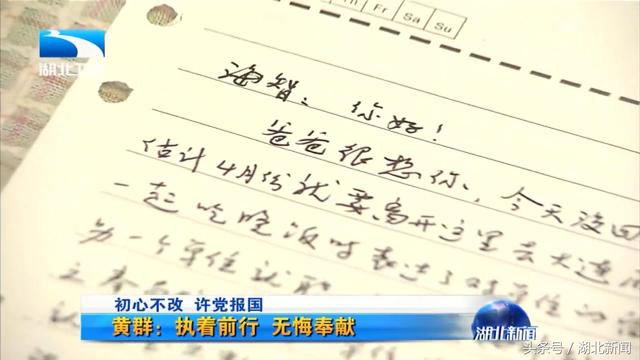 Fr Sa Su
湖北卫视
海智：你好！
爸爸很想你，今天没回
估计4月份就要离开这里去大连
一起吃晚饭时表达了对单位的
另一个单位就职
初心不改 许党报国
黄群：执着前行 无悔奉献
湖北新闻
头条号/湖北新闻